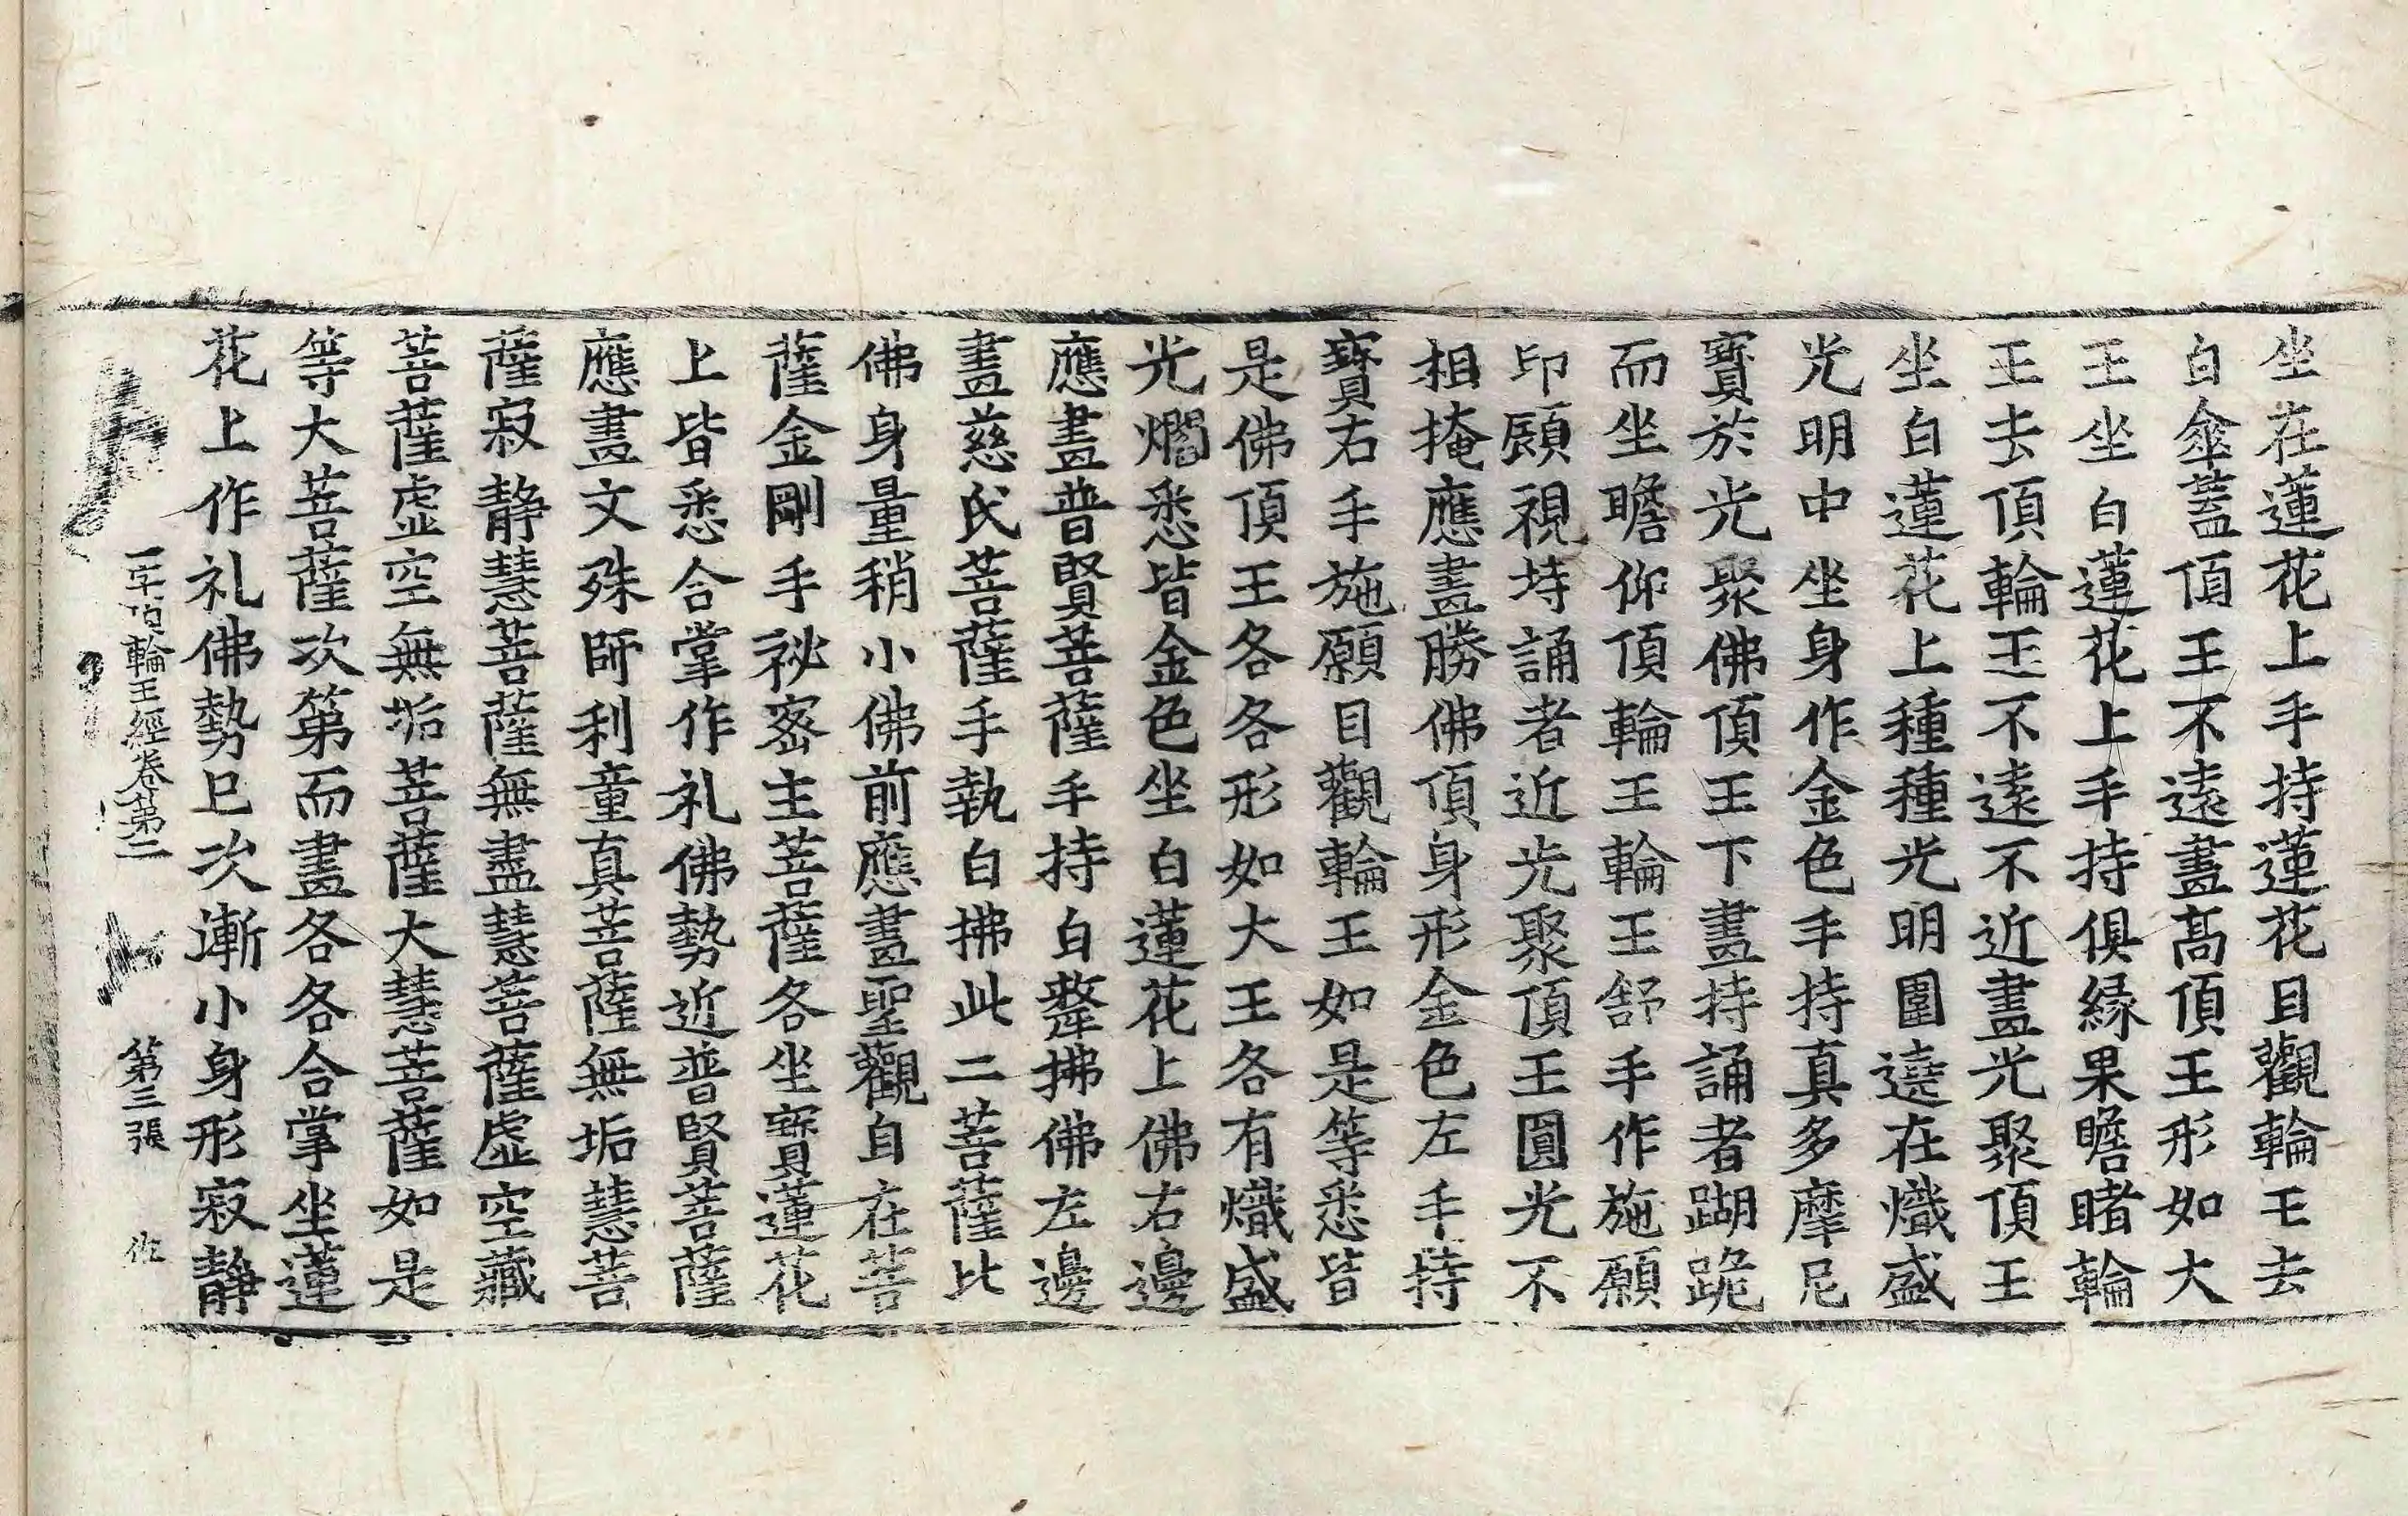 坐在蓮花上手持蓮花目觀輪王去
白傘蓋頂王不遠畫髙頂王形如大
王坐白蓮花上手持俱緣果瞻睹輪
王去頂輪王不遠不近畫光聚頂王
坐白蓮花上種種光明圍遶在熾盛
光明中坐身作金色手持真多摩尼
寶於光聚佛頂王下畫持誦者蹦跪
而坐瞻仰頂輪王輪王舒手作施願
印顧視持誦者近光聚頂王圓光不
相掩應畫勝佛頂身形金色左手持
寶右手施願目觀輪王如是等悉皆
是佛頂王各各形如大王各有熾盛
光爓悉皆金色坐白蓮花上佛右邊
應畫普賢菩薩手持白拂佛左邊
畫慈氏菩薩手執白拂此二菩薩比
佛身量稍小佛前應畫聖觀自在菩
薩金剛手祕密主菩薩各坐寶蓮花
上皆悉合掌作礼佛勢近普賢菩薩
應畫文殊師利童真菩薩無垢慧菩
薩寂靜慧菩薩無盡慧菩薩虛空藏
菩薩虛空無垢菩薩大慧菩薩如是
等大菩薩次第而畫各各合掌坐蓮
花上作礼佛勢已次漸小身形寂靜
一字頂輪王經卷第二 第三張